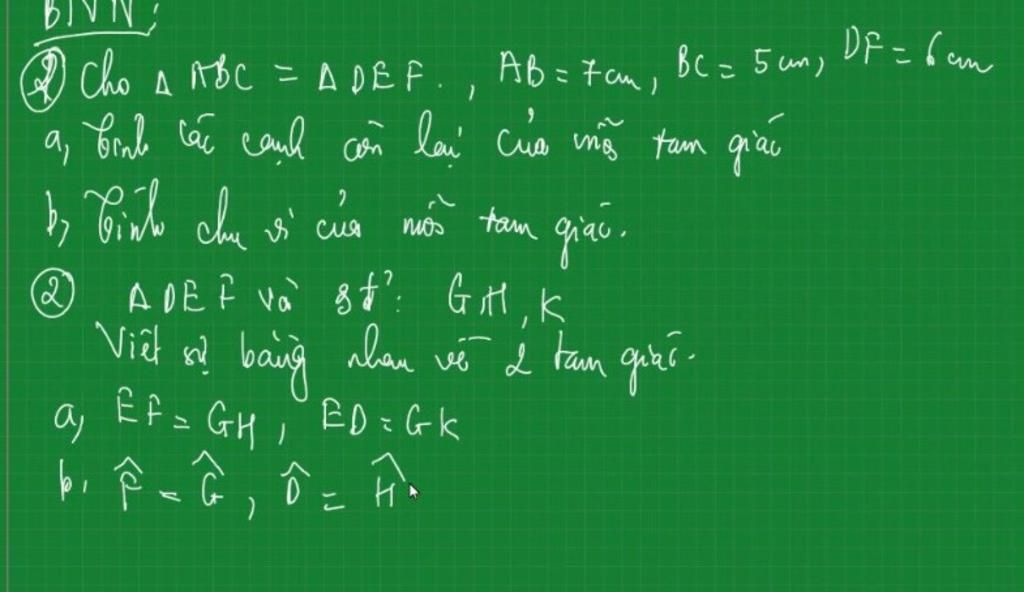 BTVN:
① Cho Δ ABC = Δ DEF. , AB = 7cm, BC = 5cm, DF = 6cm
a, Tính các cạnh còn lại của mỗi tam giác
b, Tính chu vi của mỗi tam giác.
② Δ DEF và 3 đ': G, H, K
Viết sự bằng nhau về 2 tam giác.
a, EF = GH, ED = GK
b. F̂ = Ĝ, D̂ = Ĥ